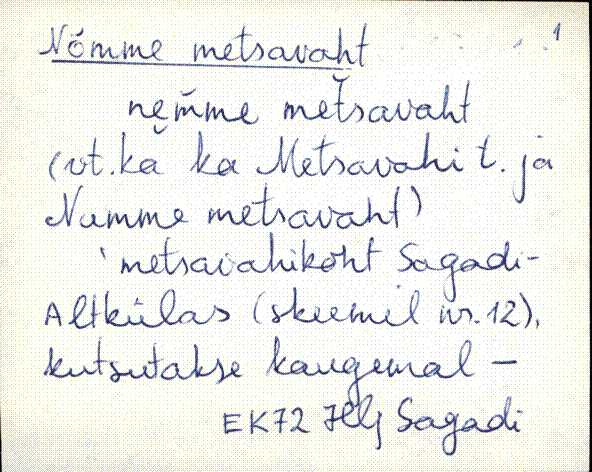 1
Nõmme metsavaht
nem̆me mets̆avaht
(vt. ka ka Metsavahi t. ja
Numme metsavaht)
'metsavahikoht Sagadi-
Altkülas (skeemil nr. 12),
kutsutakse kaugemal –
EK72 Hlj Sagadi